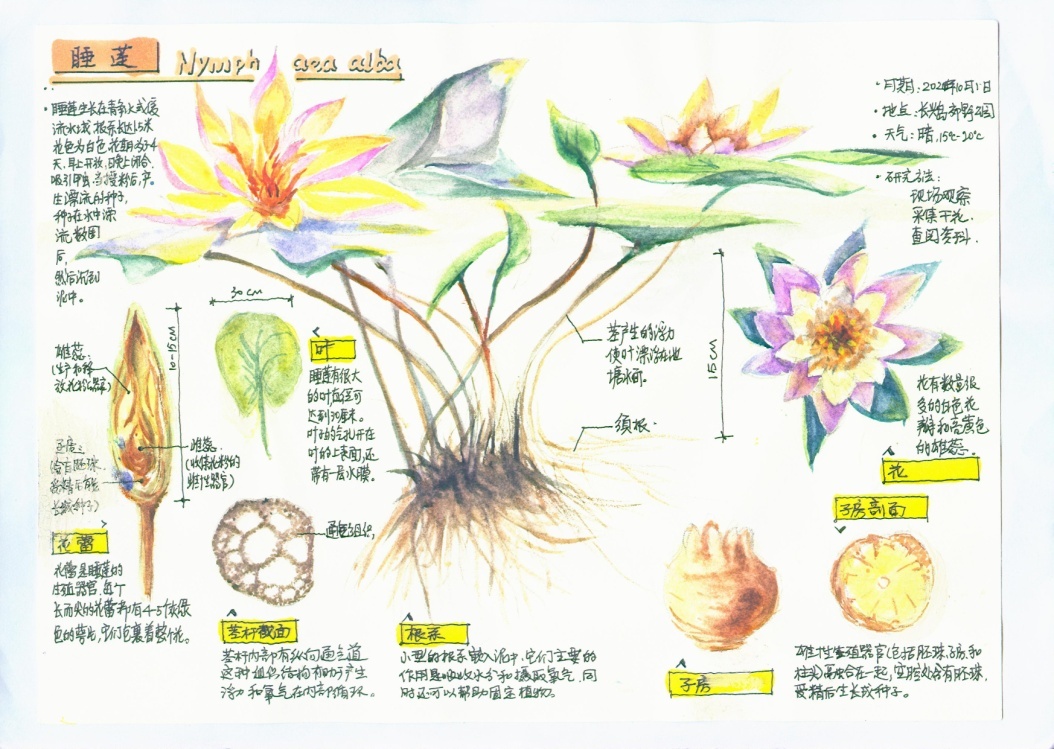 睡莲 Nymph aea alba
·睡莲生长在青年水或缓
流水域,根系长达1.5米
花色为白色,花期为3-4
天,早上开放,日晚上闭合,
吸引甲虫,当授粉后,产
生漂流的种子,
种子在水中漂
流数周
后,
然后沉到
泥中。
·日期:2024年10月1日
·地点:
·天气:晴,15℃-20℃
·研究方法:
现场观察
采集干花
查阅资料.
30cm
10-15cm
15cm
雄蕊:
(生产和释
放花粉的器官)
子房:
含有胚珠.
受精后成
长成种子)
雌蕊:
(收集花粉的
雌性器官)
叶
睡莲有很大
的叶直径可
达到30厘米。
叶子的气孔开在
叶的上表面,还
带有一层水膜。
茎产生的浮力
使叶漂浮在池
塘水面。
须根.
花有数量很
多的白色花
瓣和亮黄色
的雄蕊.
花
子房剖面
花蕾
花蕾是睡莲的
生殖器官.每个
长而尖的花蕾都有4-5个淡绿
色的萼片,它们包裹着整个花。
通气组织,
茎杆截面
茎杆内部有纵向通气道
这种组织结构有助于产生
浮力和氧气在内部循环.
根系
小型的根系嵌入泥中,它们主要的
作用是吸收水分和摄取氧气,同
时还可以帮助固定植物.
子房
雌性生殖器官(包括胚珠,子房和
柱头)融合在一起,空腔处含有胚珠,
受精后生长成种子。